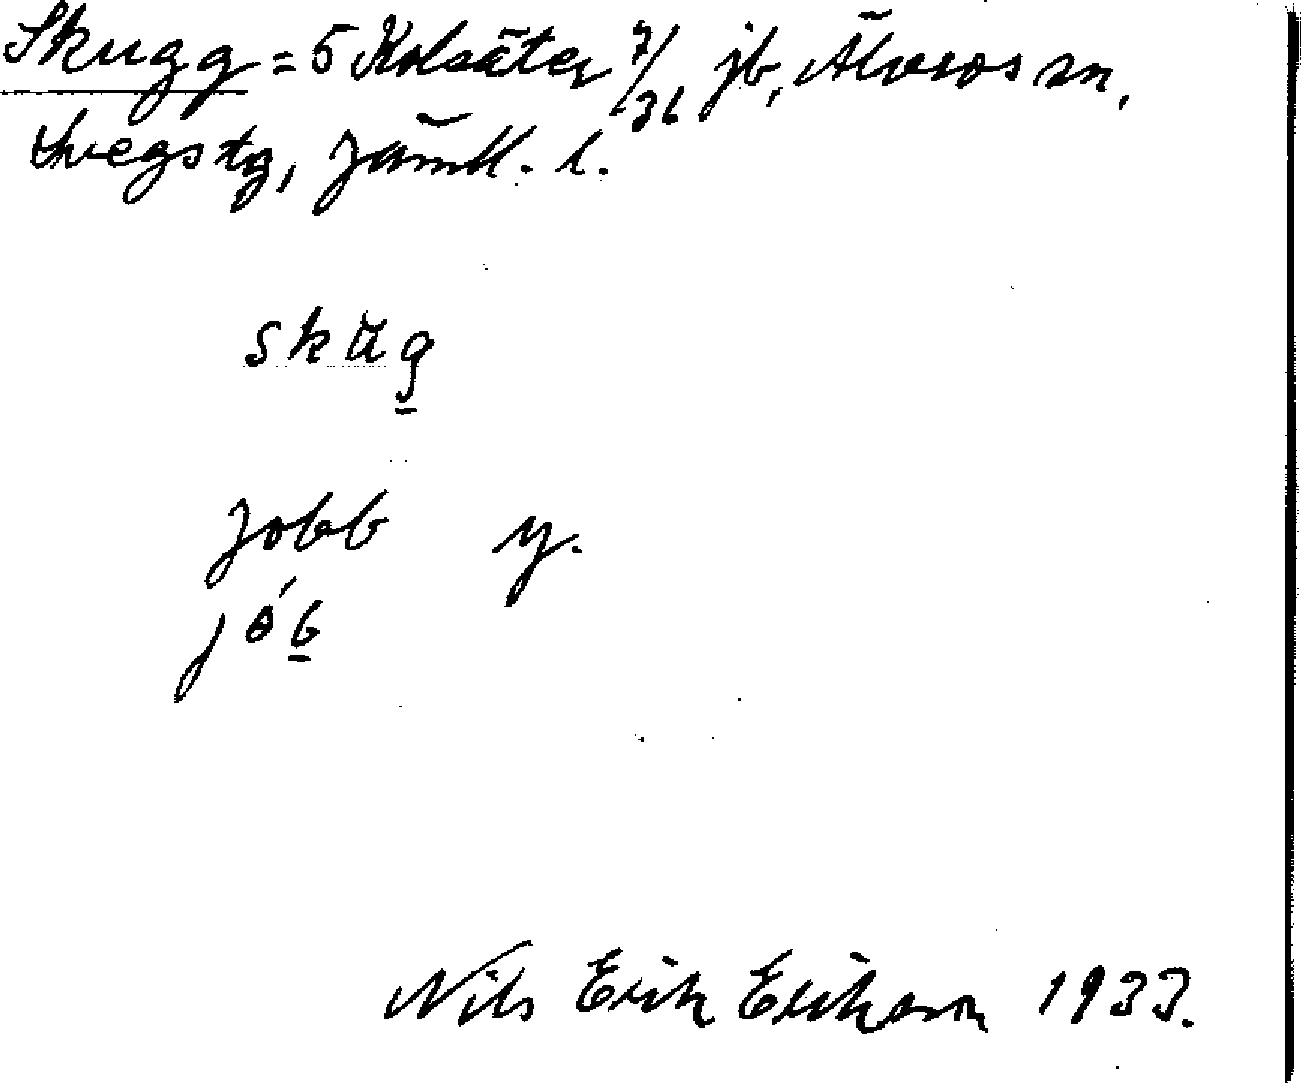 Skugg = 5 Kolsäter 7/36 jb, Älvros sn,
Svegs tg, Jämtl. l.
skug
Jobb y.
jób
Nils Erik Erikson 1933.